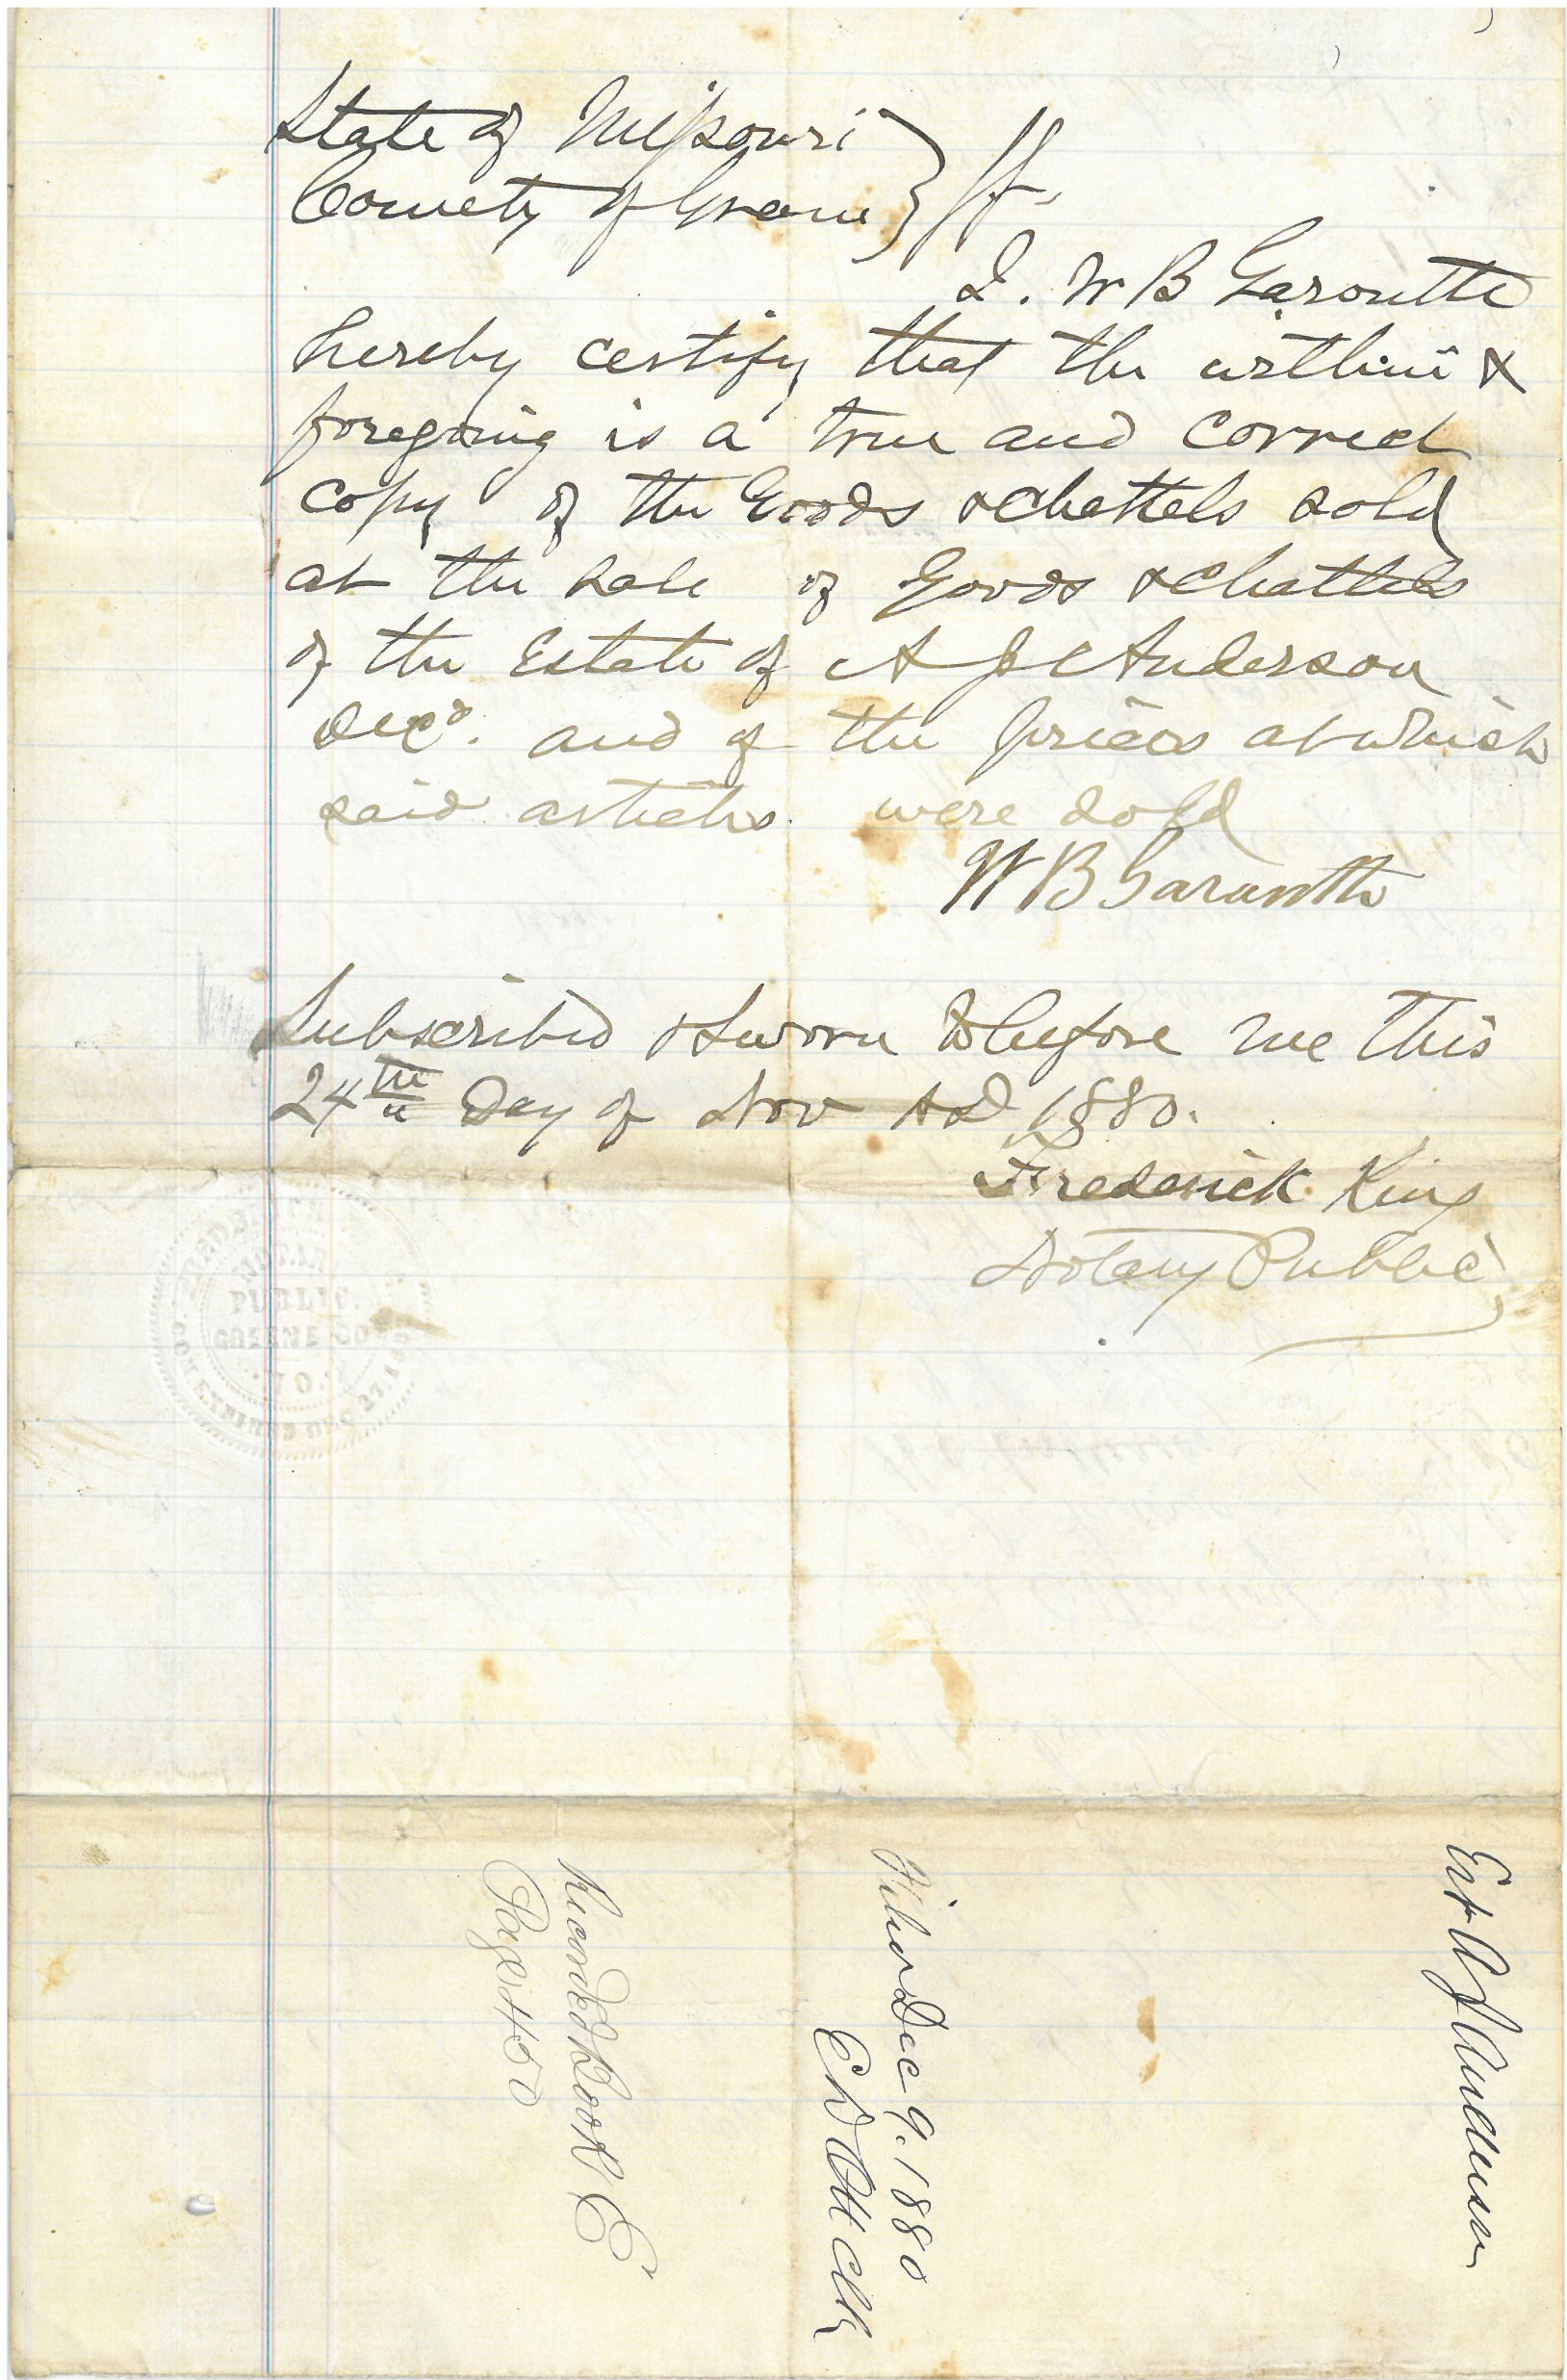 State of Missouri
County of Greene } ss.
I. W B Garoutte
hereby certify that the within &
foregoing is a true and correct
copy of the Goods & Chattels sold
at the sale of Goods & Chattels
of the Estate of A J Anderson
Decd. and of the prices at which
said articles were sold
W B Garoutte
Subscribed & Sworn to before me this
24th Day of Nov AD 1880.
Frederick King
Notary Public
NOTARY
PUBLIC
GREENE CO
MO.
Est A J Anderson
Filed Dec 9. 1880
E D Ott Clk
Recorded Book E
Page 450